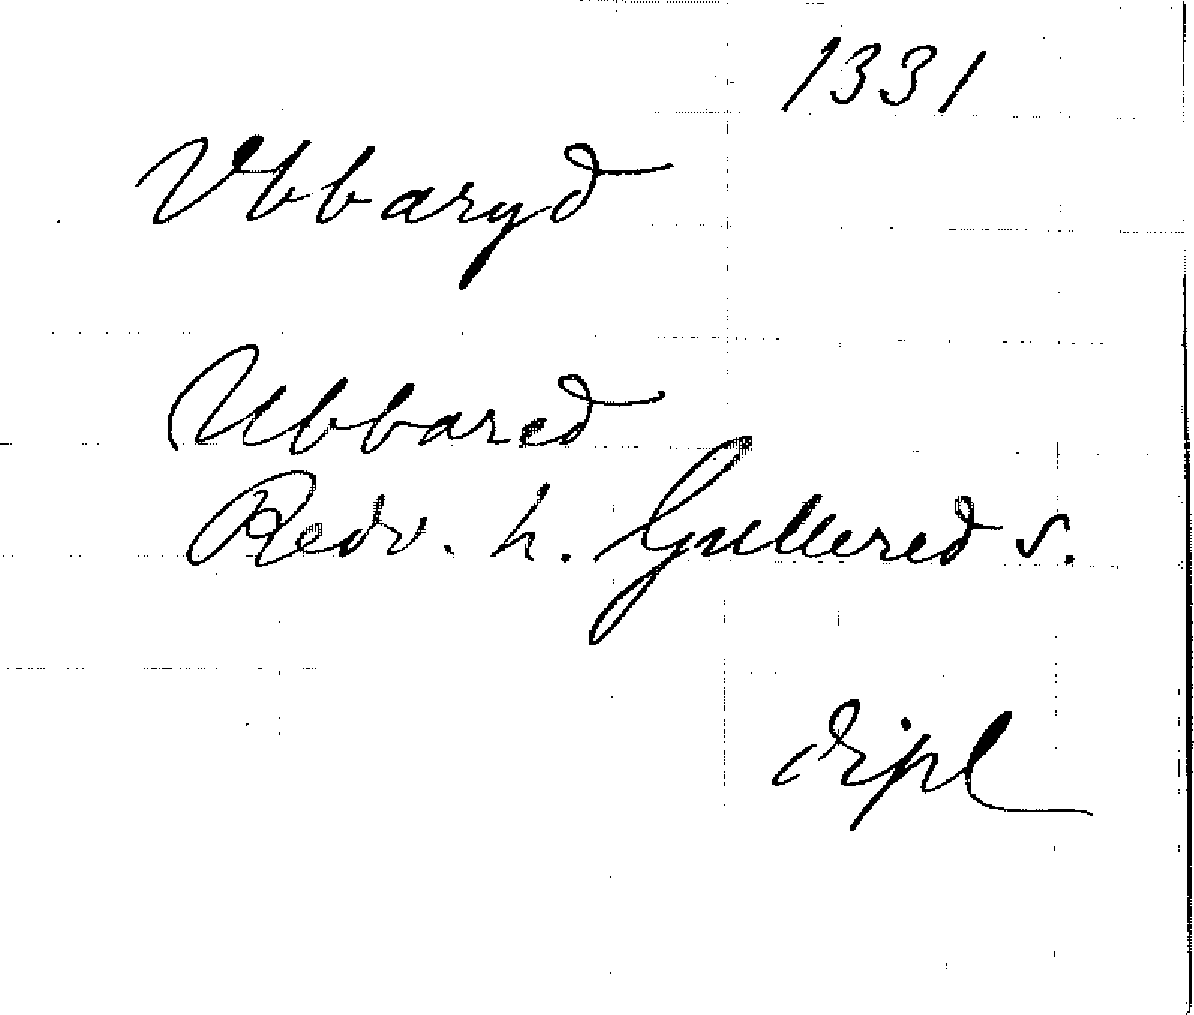 1331
Vbbaryd
Ubbared
Redv. h. Gullered s.
dipl